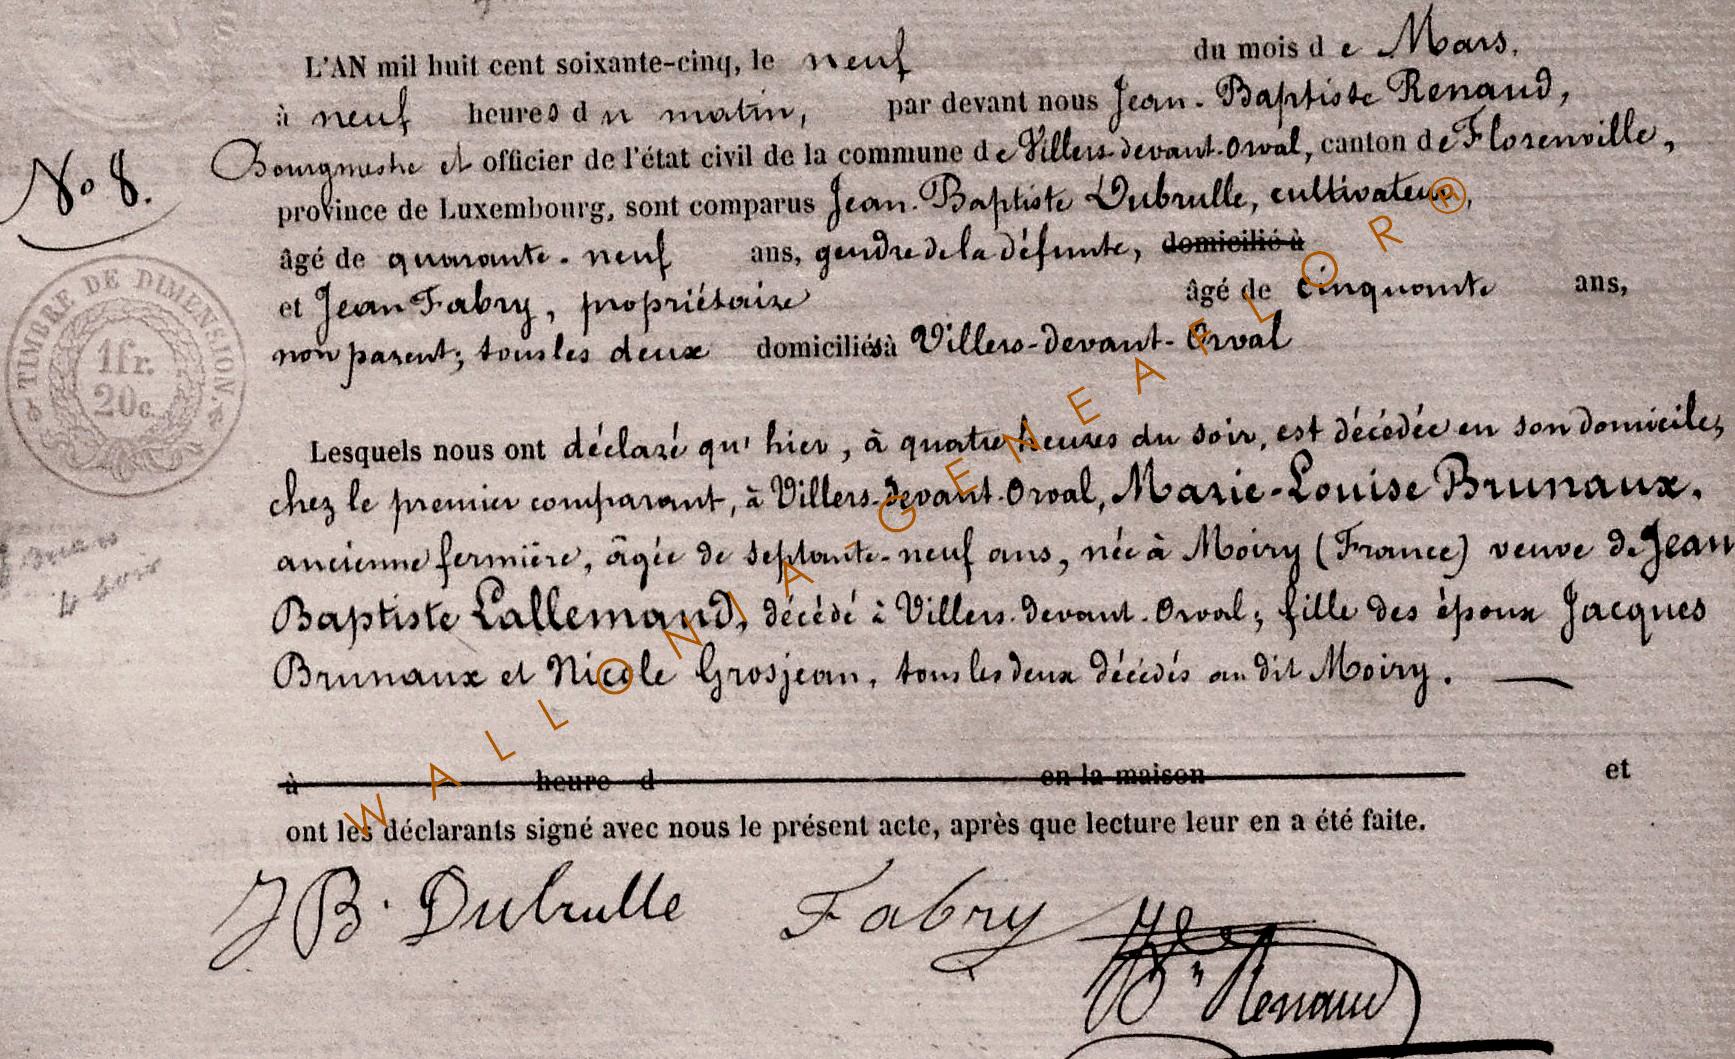 L'AN mil huit cent soixante-cinq, le neuf du mois de Mars,
à neuf heures du matin, par devant nous Jean-Baptiste Renaud,
Bourgmestre et officier de l'état civil de la commune de Villers-devant-Orval, canton de Florenville,
N° 8.
province de Luxembourg, sont comparus Jean-Baptiste Dubrulle, cultivateur,
âgé de quarante-neuf ans, gendre de la défunte, domicilié à
et Jean Fabry, propriétaire âgé de cinquante ans,
non parent; tous les deux domiciliés à Villers-devant-Orval
TIMBRE DE DIMENSION.
1fr.
20c.
Lesquels nous ont déclaré qu'hier, à quatre heures du soir, est décédée en son domicile,
chez le premier comparant, à Villers-devant-Orval, Marie-Louise Brunaux,
ancienne fermière, âgée de septante-neuf ans, née à Moiry (France) veuve de Jean
Baptiste Lallemand, décédé à Villers-devant-Orval; fille des époux Jacques
Brunaux et Nicole Grosjean, tous les deux décédés au dit Moiry.
à heure d en la maison et
ont les déclarants signé avec nous le présent acte, après que lecture leur en a été faite.
JB. Dubrulle Fabry
Renaud
WALLONIA-GENEAFLOR®